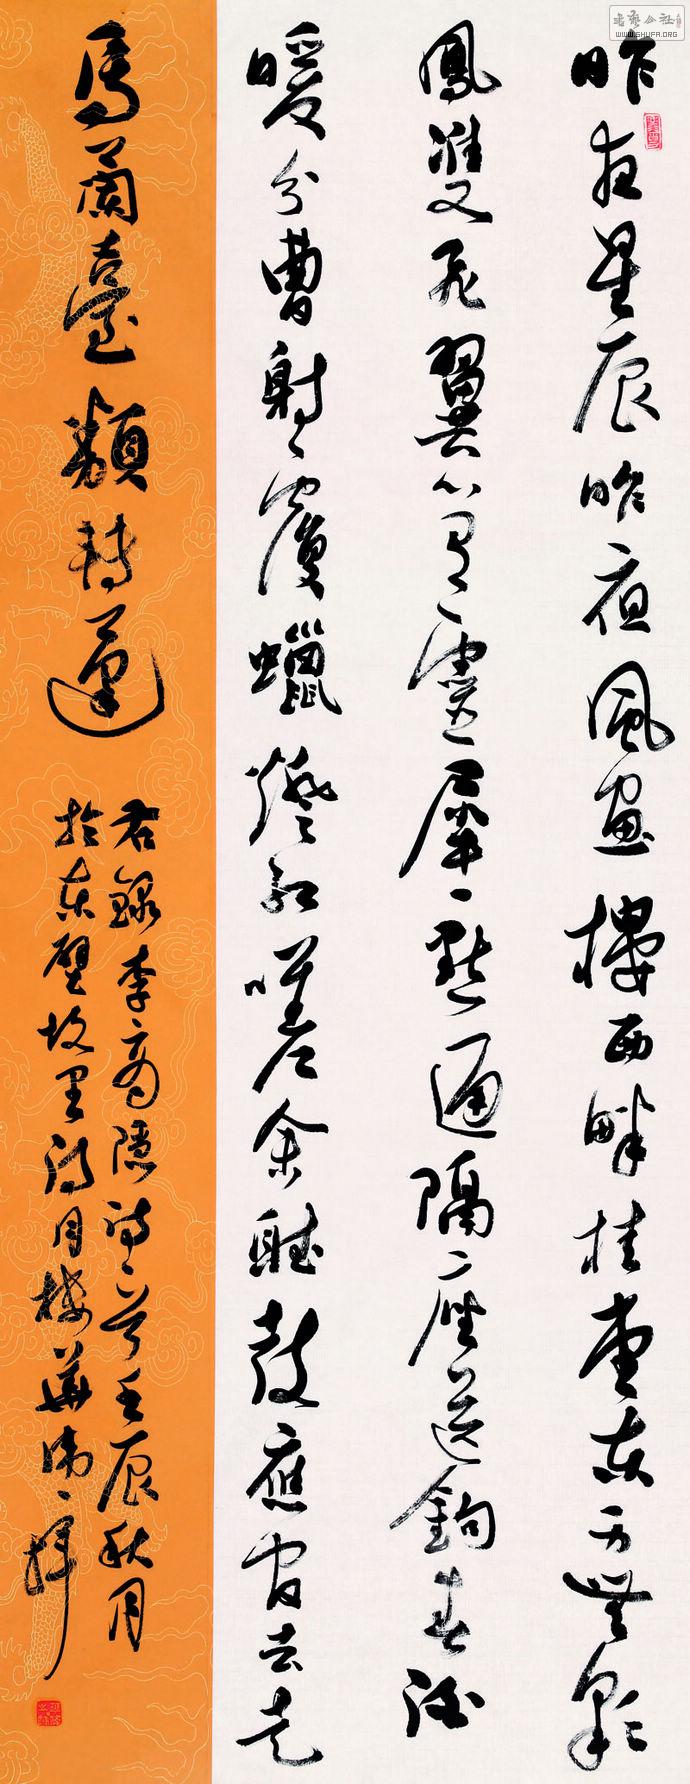 昨夜星辰昨夜風畫樓西畔桂堂東身無彩
鳳雙飛翼心有靈犀一點通隔座送鉤春酒
暖分曹射覆蠟燈紅嗟余聽鼓應官去走
馬蘭臺類轉蓬
右錄李商隱詩一首壬辰秋月
於東璧故里詩月樓
書藝公社
WWW.SHUFA.ORG